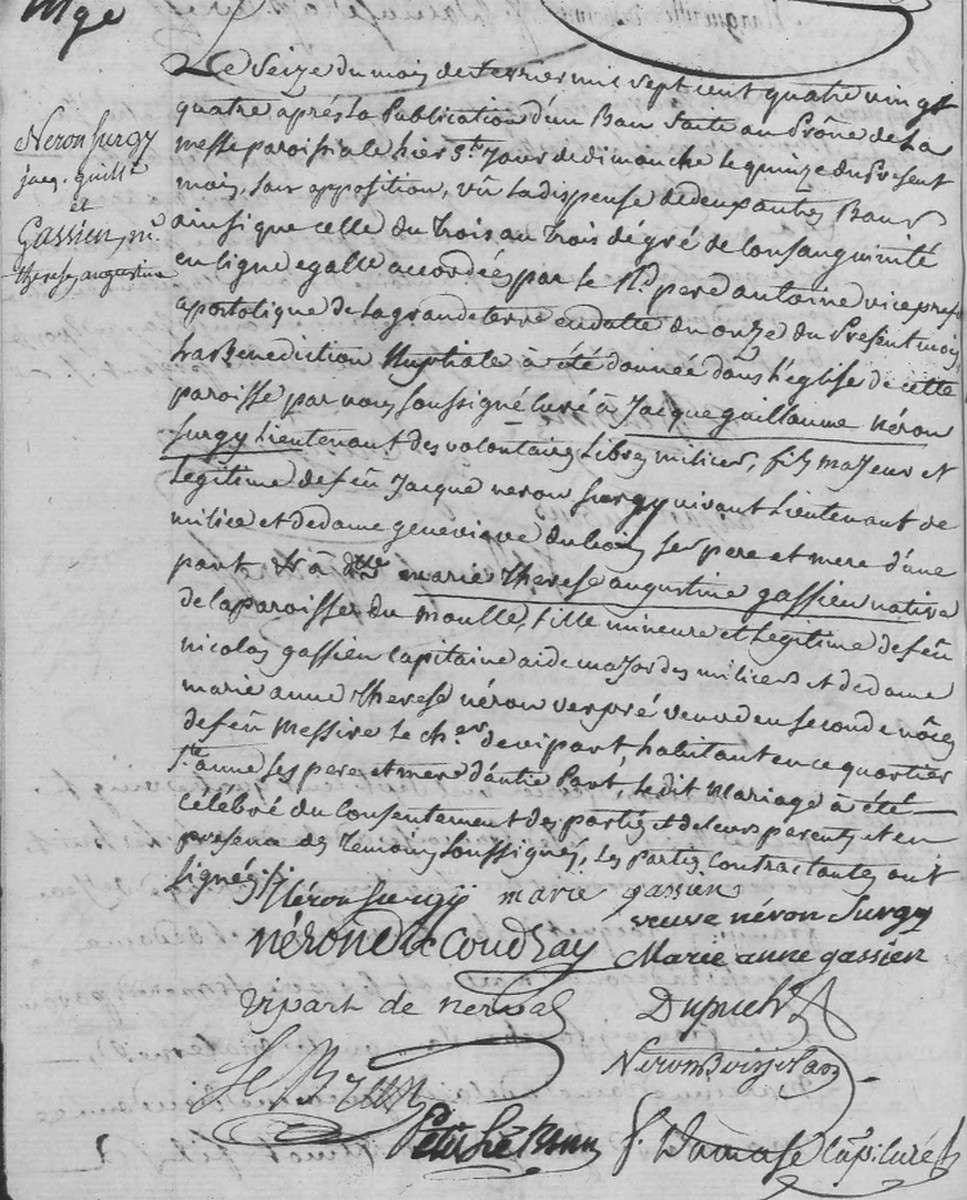 Mge
Neron Surgy
jacq. guill.
et
Gassien, m.
therese augustine
Le Seize du mois de fevrier mil sept cent quatre vingt
quatre après la Publication d'un Ban faite au Prône de La
messe paroissiale hier 3.e Jour de dimanche le quinze du Present
mois, sans opposition, vû la dispense de deux autres Bans
ainsi que celle du Trois au Trois dégré de Consanguinité
en ligne egalle accordées par le R.d pere antoine vice pref.
apostolique de la grande terre en datte du onze du Present mois
La Benediction Nuptiale à été donnée dans l'eglise de cette
paroisse par nous soussigné Curé à Jacque guillaume néron
Surgy Lieutenant des volontaires Libres milices, fils majeur et
Légitime de feû Jacque neron Surgy vivant Lieutenant de
milice et de dame geneviève dubois ses pere et mere d'une
part & à d.lle marie Therese augustine gassien native
de la paroisse du moulle, fille mineure et Légitime de feû
nicolas gassien Capitaine aide major des milices et de dame
marie anne Therese néron verpré veuve en seconde nôces
de feû Messire Le ch.er de vipart, habitant en ce quartier
S.te anne ses pere et mere d'autre Part, Ledit Mariage à été
célébré du Consentement des parties et de leurs parents et en
presence des Temoins soussignés, les parties Contractantes ont
signées
Néron Surgÿ marie gassien
néron de le Coudray veuve néron Surgy
Marie anne gassien
vipart de nerval Dupuch
Le Brun Neron Boisjolan
Petit Le Brun f. Damase Cap. Curé